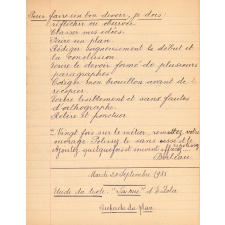 Pour faire un bon devoir, je dois
réfléchir ou observer.
Classer mes idées.
Faire un plan.
Rédiger soigneusement le début et
la conclusion.
Écrire le devoir formé de plusieurs
paragraphes.
Corriger mon brouillon avant de
recopier.
Écrire lisiblement et sans fautes
d'orthographe.
Relire et ponctuer.
"Vingt fois sur le métier, remettez votre
ouvrage Polissez le sans cesse et le repolissez
Ajoutez quelquefois et souvent effacez"
Boileau
Mardi 20 Septembre 1938
Étude du texte: "
" d'E. Zola
Recherche du plan